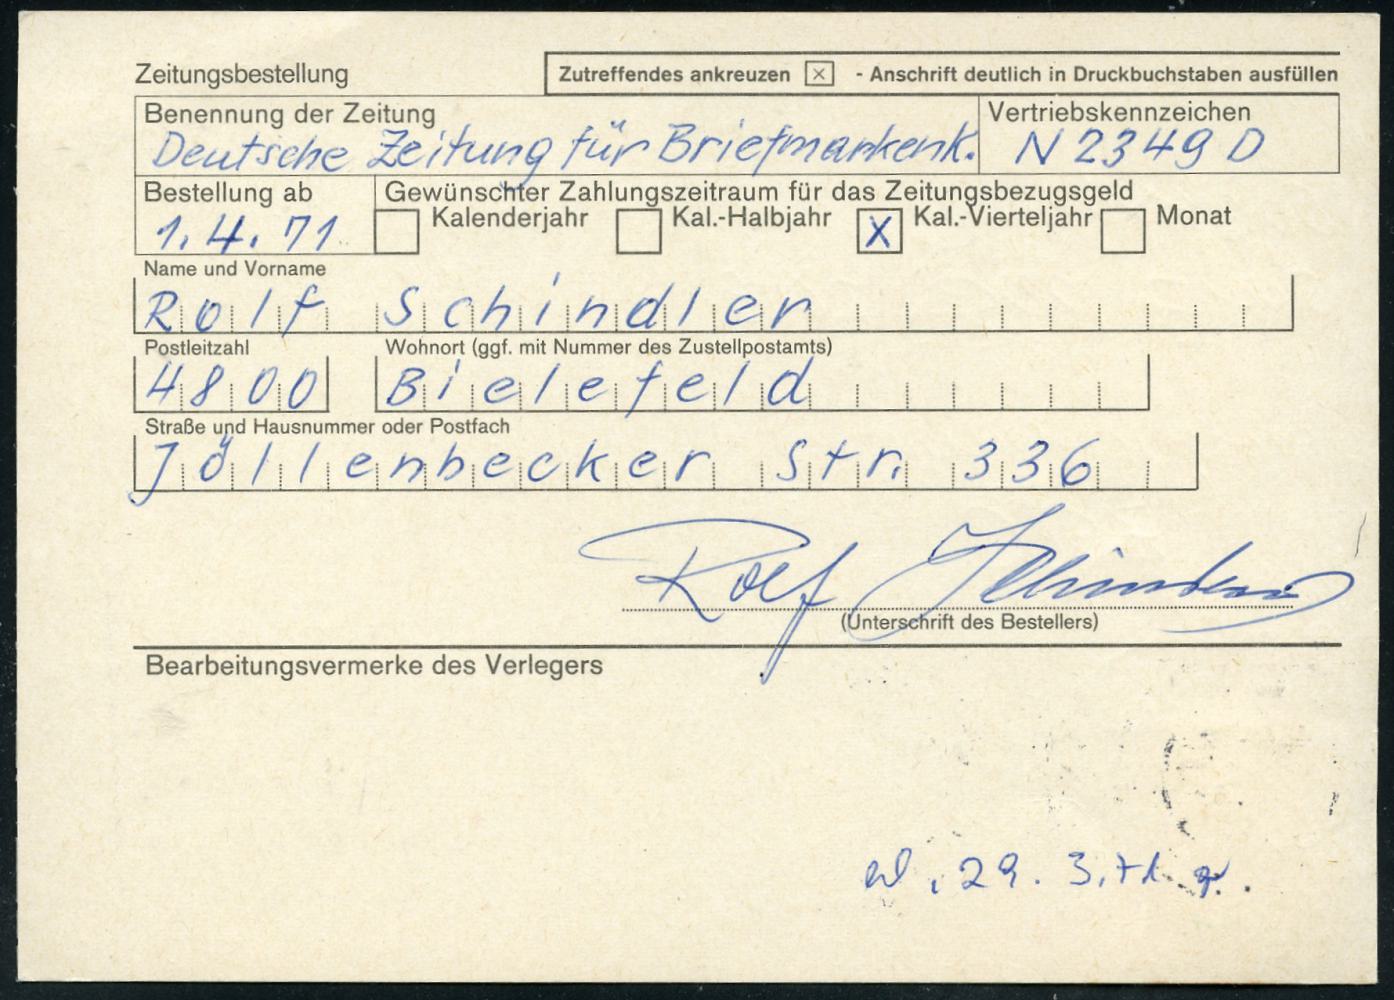 Zeitungsbestellung
Zutreffendes ankreuzen ☒ - Anschrift deutlich in Druckbuchstaben ausfüllen
Benennung der Zeitung
Vertriebskennzeichen
Deutsche Zeitung für Briefmarkenk.
N 2349 D
Bestellung ab
Gewünschter Zahlungszeitraum für das Zeitungsbezugsgeld
1.4.71 ☐ Kalenderjahr ☐ Kal.-Halbjahr ☒ Kal.-Vierteljahr ☐ Monat
Name und Vorname
Rolf Schindler
Postleitzahl
Wohnort (ggf. mit Nummer des Zustellpostamts)
4800 Bielefeld
Straße und Hausnummer oder Postfach
Jöllenbecker Str. 336
Rolf Schindler
(Unterschrift des Bestellers)
Bearbeitungsvermerke des Verlegers
29. 3. 71